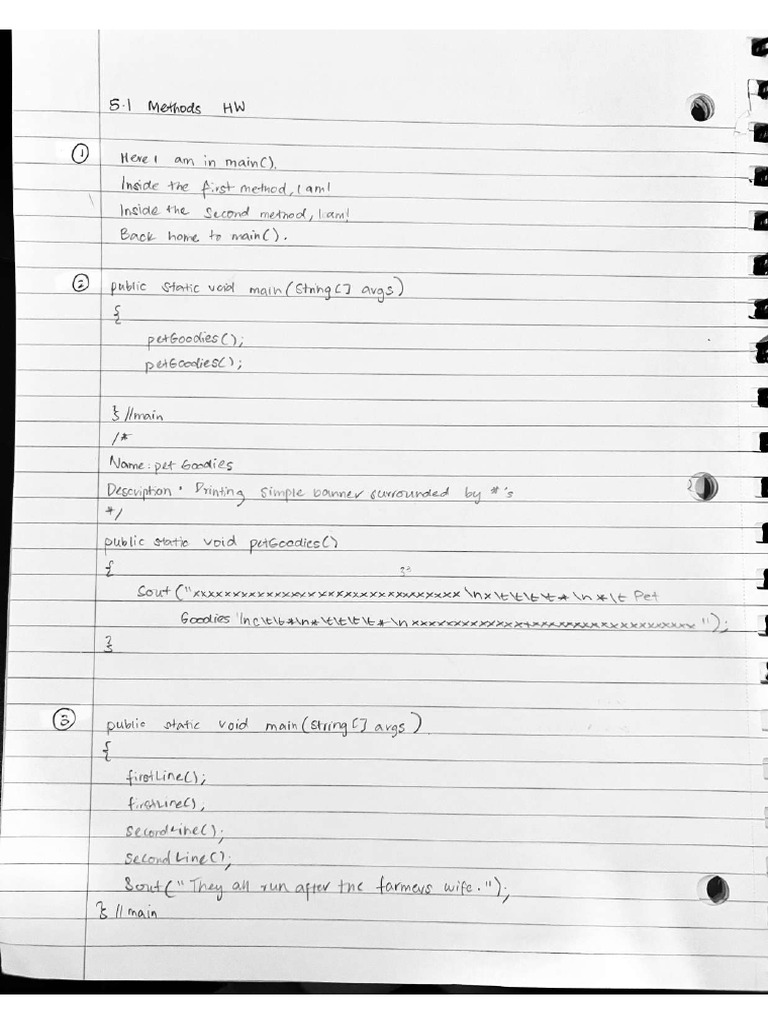 5.1 Methods HW
① Here I am in main().
Inside the first method, I am!
Inside the second method, I am!
Back home to main().
② public static void main(String[] args)
{
petGoodies();
petGoodies();
} //main
/*
Name: pet Goodies
Description: Printing simple banner surrounded by *'s
*/
public static void petGoodies()
{
33
Sout("xxxxxxxxxxxxxxxxxxxxxxxxxxxxxxxxx\nx\t\t\t\t*\n*\t Pet
Goodies \n(\t\t*\n*\t\t\t\t*\nxxxxxxxxxxxxxxxxxxxxxxxxxxxxxxxxx");
}
③ public static void main(String[] args)
{
firstLine();
firstLine();
secondLine();
secondLine();
Sout("They all run after the farmers wife.");
} //main